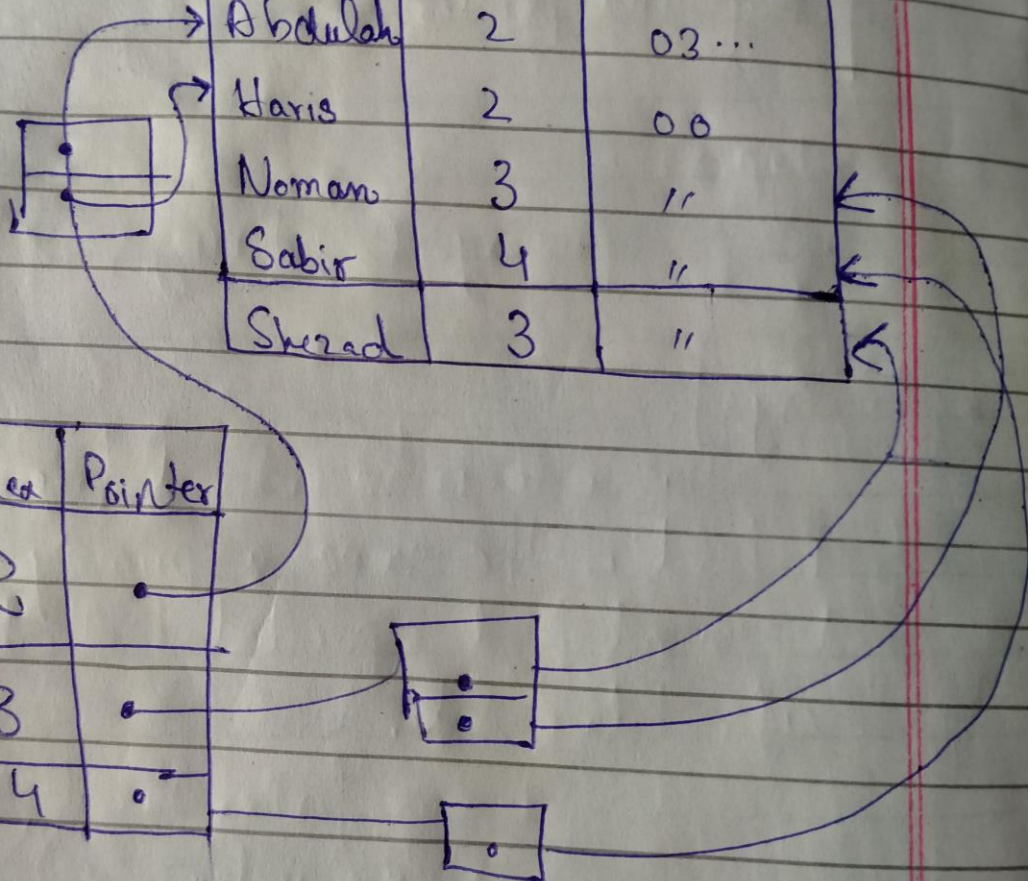 Abdulah 2 03...
Haris 2 00
Noman 3 "
Sabir 4 "
Shezad 3 "
Pointer
2
3
4